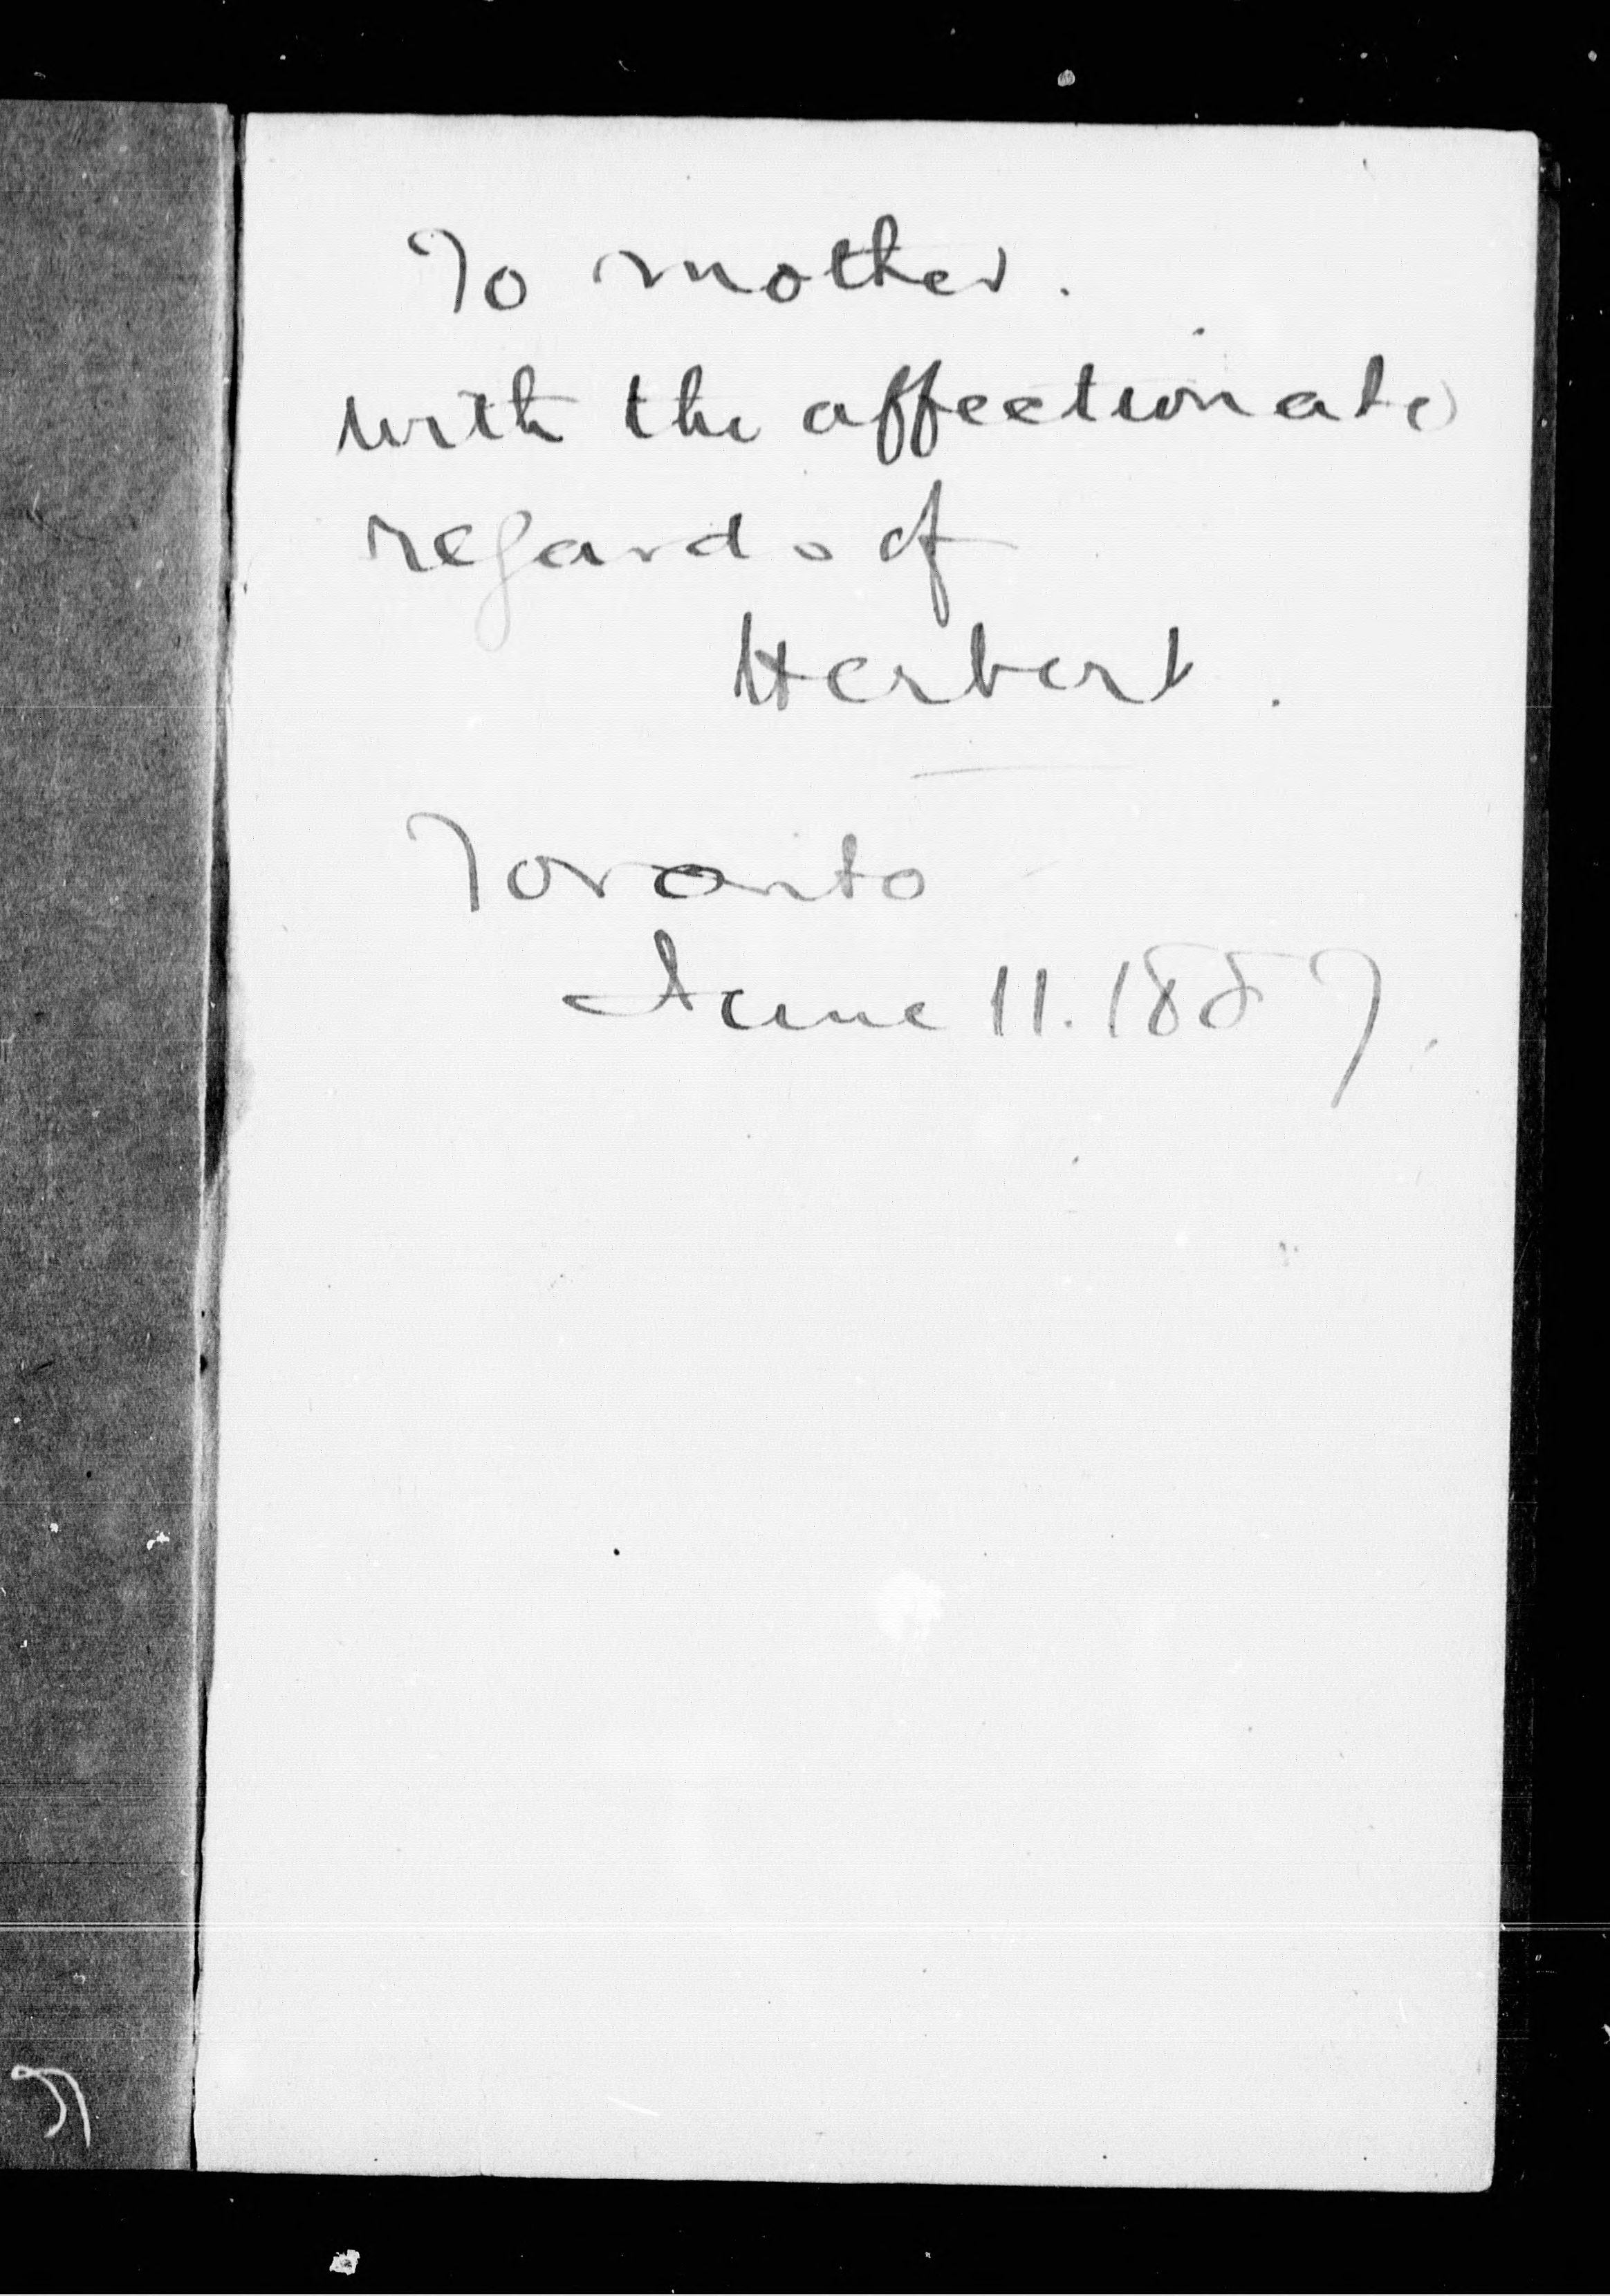 To mother.
with the affectionate
regards of
Herbert.
Toronto
June 11. 1887.